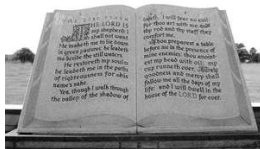 THE LORD IS
my shepherd: I
shall not want
He maketh me to lie down
in green pastures: he leadeth
me beside the still waters
He restoreth my soul: he
leadeth me in the paths
of righteousness for his
name's sake
Yea, though I walk through
the valley of the shadow of
death, I will fear no evil:
for thou art with me:
thy rod and thy staff they
comfort me.
Thou preparest a table
before me in the presence of
mine enemies: thou anoint-
est my head with oil: my
cup runneth over.
goodness and mercy shall
follow me all the days of my
life: and I will dwell in the
house of the LORD for ever.